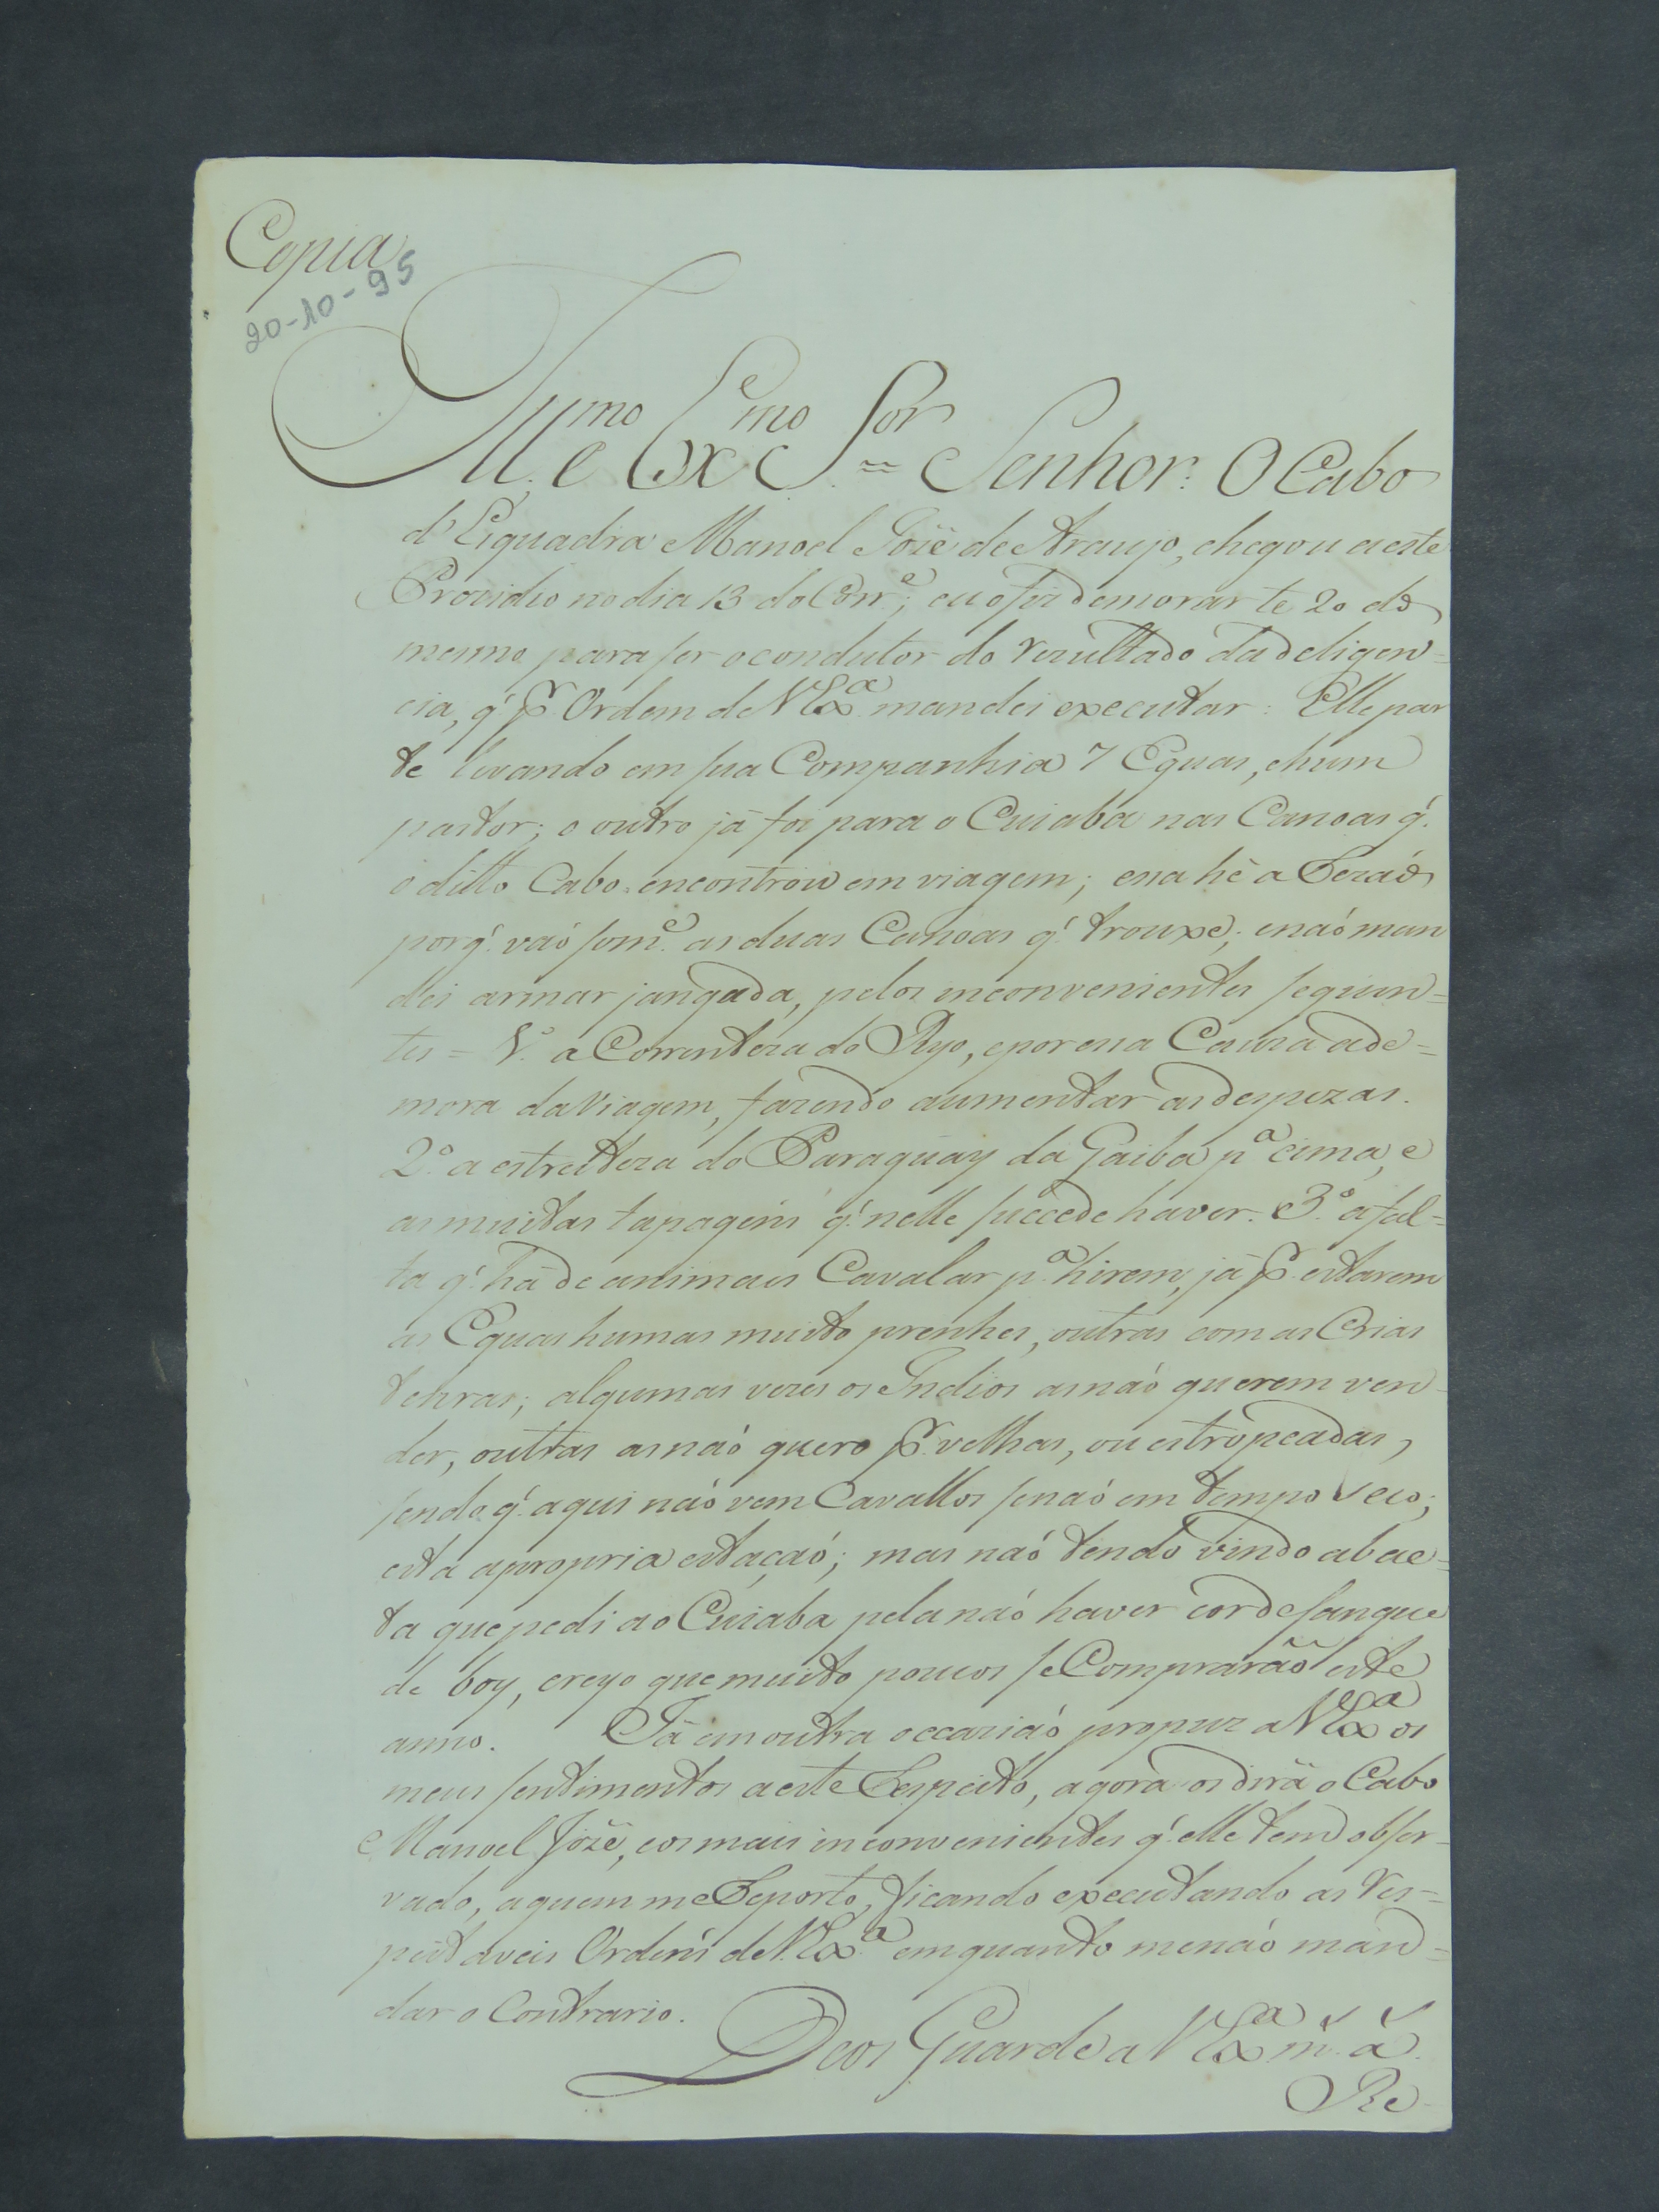 Copia
20-10-95
Ill.mo e Ex.mo S.or = Senhor: O Cabo
d'Esquadra Manoel Jozê de Araujo, chegou a este
Prezidio no dia 13 do Corr.e; eu o fiz demorar te 20 do
mesmo para ser o condutor do rezultado da deligen=
cia, q' p.r Ordem de V Ex.a mandei executar: Elle par
te levando em sua Companhia 7 Eguas, e hum
pastor; o outro já foi para o Cuiabá nas Canoas q'.
o ditto Cabo encontrou em viagem; essa hê a Rezaó
porq'. vaó som.e as duas Canoas q'. trouxe; e naó man
dei armar jangada, pelos inconvenientes seguin=
tes = 1.º a Correnteza do Ryo, e por essa Cauza a de=
mora da Viagem, fazendo aumentar as despezas.
2.º a estreiteza do Paraguay da Gaiba p.a cima, e
as muitas tapagens q'. nelle succede haver. 3.º a fal=
ta q'. há de animais Cavalar p.a hirem, já p.r estarem
as Eguas humas muito prenhes, outras com as Crias
tenras; algumas vezes os Indios as naó querem ven
der, outras as naó quero p.r velhas, ou estropeadas,
sendo q'. aqui naó vem Cavallos senaó em tempo seco;
esta a propria estaçaó; mas naó tendo vindo a bae=
ta que pedi ao Cuiaba pela naó haver cor de sangue
de boy, creyo que muito poucos se Comprarão este
anno. Já em outra occaziaó propuz a V Ex.a os
meus sentimentos a este Respeito, agora os dirá o Cabo
Manoel Jozê, e os mais inconvenientes q'. elle tem obser=
vado, a quem me Reporto, ficando executando as res=
peitaveis Ordens de V. Ex.a em quanto me naó man=
dar o Contrario.
Deos Guarde a V Ex.a m.s a.s
Re